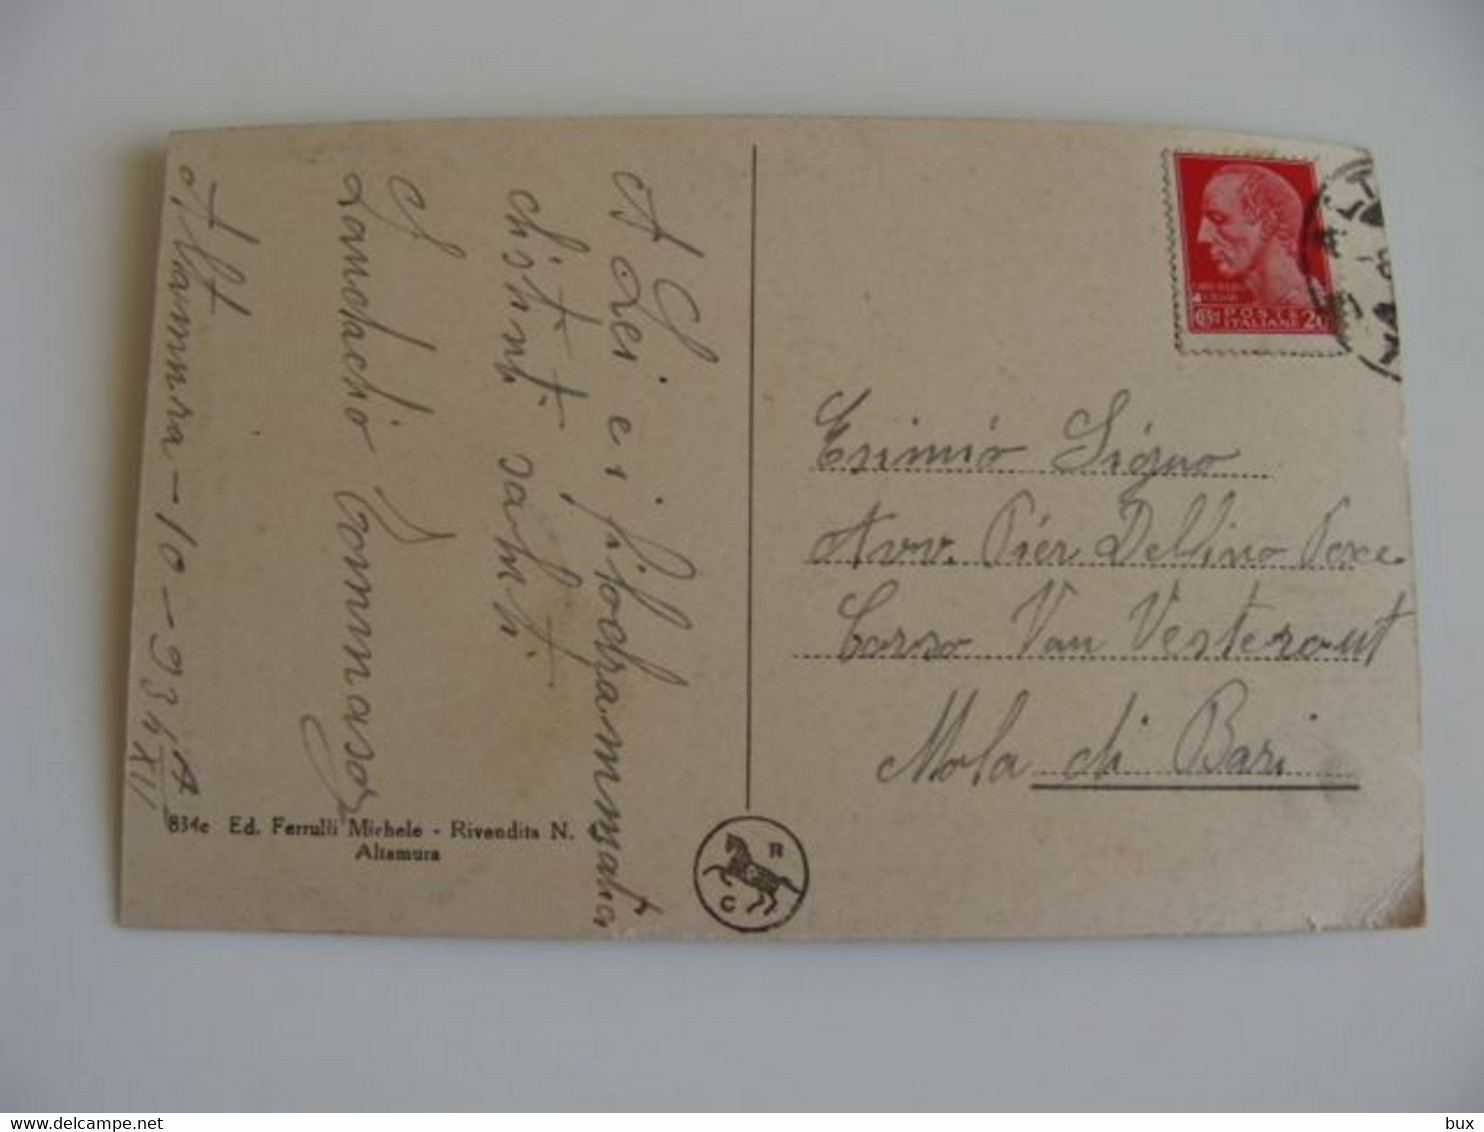 A Lei e i filodrammatici
distinti saluti.
Altamura - 10 - 934 A
XII
834e Ed. Ferrulli Michele - Rivendita N.
Altamura
R
C
POSTE
ITALIANE 20
Esimio Signo
Avv. Pier Delfino Pesce
Corso Van Vesterout
Mola di Bari
bux